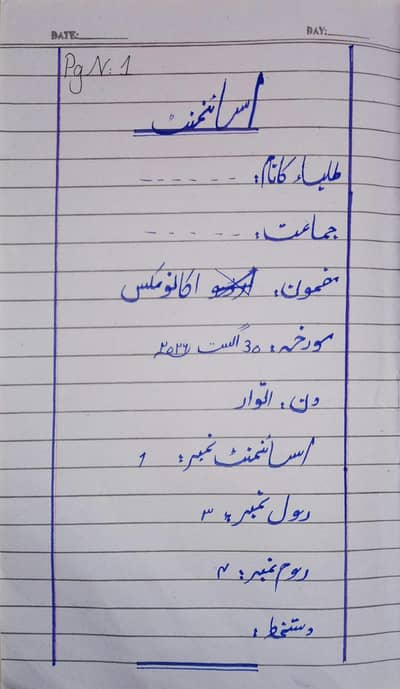 DATE:________ DAY:________
Pg N: 1
اسائنمنٹ
طلباء کا نام: ------
جماعت: ------
مضمون: اردو اکانومکس
مورخہ: 30 اگست ۲۰۲۶
دن: اتوار
اسائنمنٹ نمبر: 1
رول نمبر: ۳
روم نمبر: ۴
دستخط: